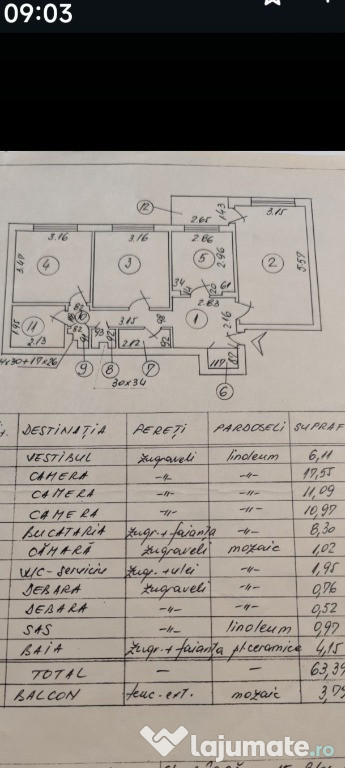 09:03
12
2.65
1.43
3.15
3.16
3.16
2.86
3.47
4
3
5
2.96
2
5.57
34
61
2.83
1.95
11
10
3.15
98
1
2.16
2.13
2.12
92
117
87
4x30+17x26
9
8
7
6
30x34
DESTINAȚIA PEREȚI PARDOSELI SUPRAF
VESTIBUL zugraveli linoleum 6,11
CAMERA -"- -"- 17,55
CAMERA -"- -"- 11,09
CAMERA -"- -"- 10,97
BUCATARIA zugr.+faianța -"- 8,30
CĂMARĂ zugraveli mozaic 1,02
W/C-serviciu zugr.+ulei -"- 1,95
DEBARA zugraveli -"- 0,76
DEBARA -"- -"- 0,52
SAS -"- linoleum 0,97
BAIA zugr.+faianța pl.ceramice 4,15
TOTAL - - 63,39
BALCON tenc.ext. mozaic 3,79
lajumate.ro